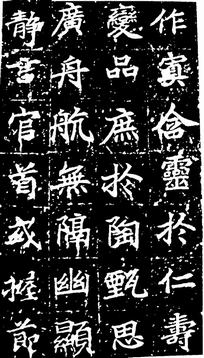 作寘含靈於仁壽
變品庶於陶甄思
廣舟航無隔幽顯
静言官首或握節